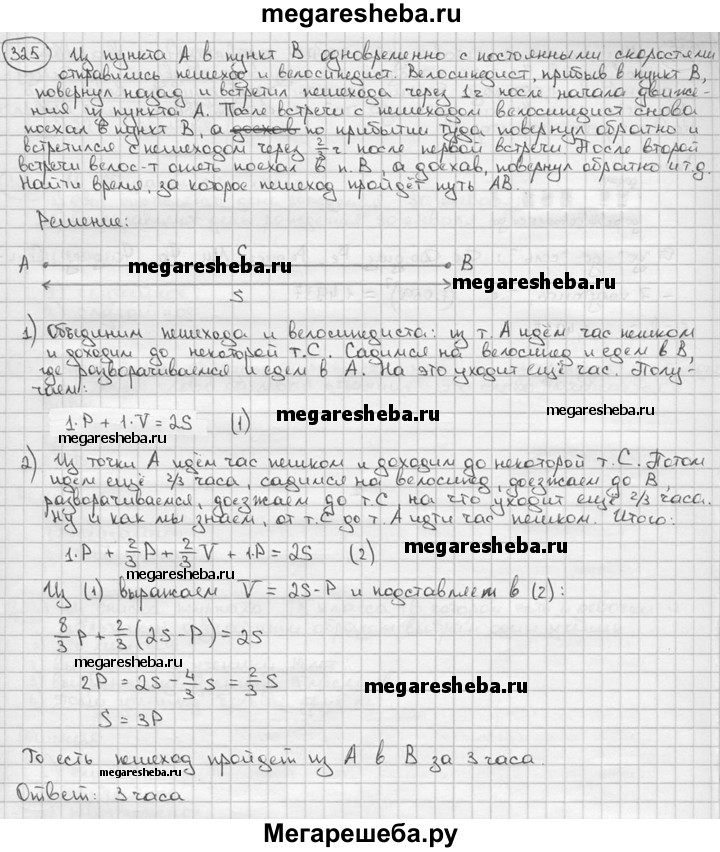 megaresheba.ru
325 Из пункта А в пункт В одновременно с постоянными скоростями
отправились пешеход и велосипедист. Велосипедист, прибыв в пункт В,
повернул назад и встретил пешехода через 1 г после начала движе-
ния из пункта А. После встречи с пешеходом велосипедист снова
поехал в пункт В, а по прибытии туда повернул обратно и
встретился с пешеходом через 2/3 г после первой встречи. После второй
встречи велос-т опять поехал в п. В, а доехав, повернул обратно и т.д.
Найти время, за которое пешеход пройдёт путь АВ.
Решение:
A C B
megaresheba.ru
megaresheba.ru
S
1) Объединим пешехода и велосипедиста: из т. А идём час пешком
и доходим до некоторой т. С. Садимся на велосипед и едем в В,
где разворачиваемся и едем в А. На это уходит ещё час. Полу-
чаем:
1·P + 1·V = 2S (1)
megaresheba.ru
megaresheba.ru
megaresheba.ru
2) Из точки А идём час пешком и доходим до некоторой т. С. Потом
идём ещё 2/3 часа, садимся на велосипед, доезжаем до В,
разворачиваемся, доезжаем до т. С на что уходит ещё 2/3 часа.
Ну и как мы знаем, от т. С до т. А идти час пешком. Итого:
1·P + 2/3 P + 2/3 V + 1·P = 2S (2)
megaresheba.ru
megaresheba.ru
Из (1) выражаем V = 2S - P и подставляем в (2):
8/3 P + 2/3 (2S - P) = 2S
megaresheba.ru
2P = 2S - 4/3 S = 2/3 S
megaresheba.ru
S = 3P
То есть пешеход пройдет из А в В за 3 часа.
megaresheba.ru
Ответ: 3 часа
Мегарешеба.ру